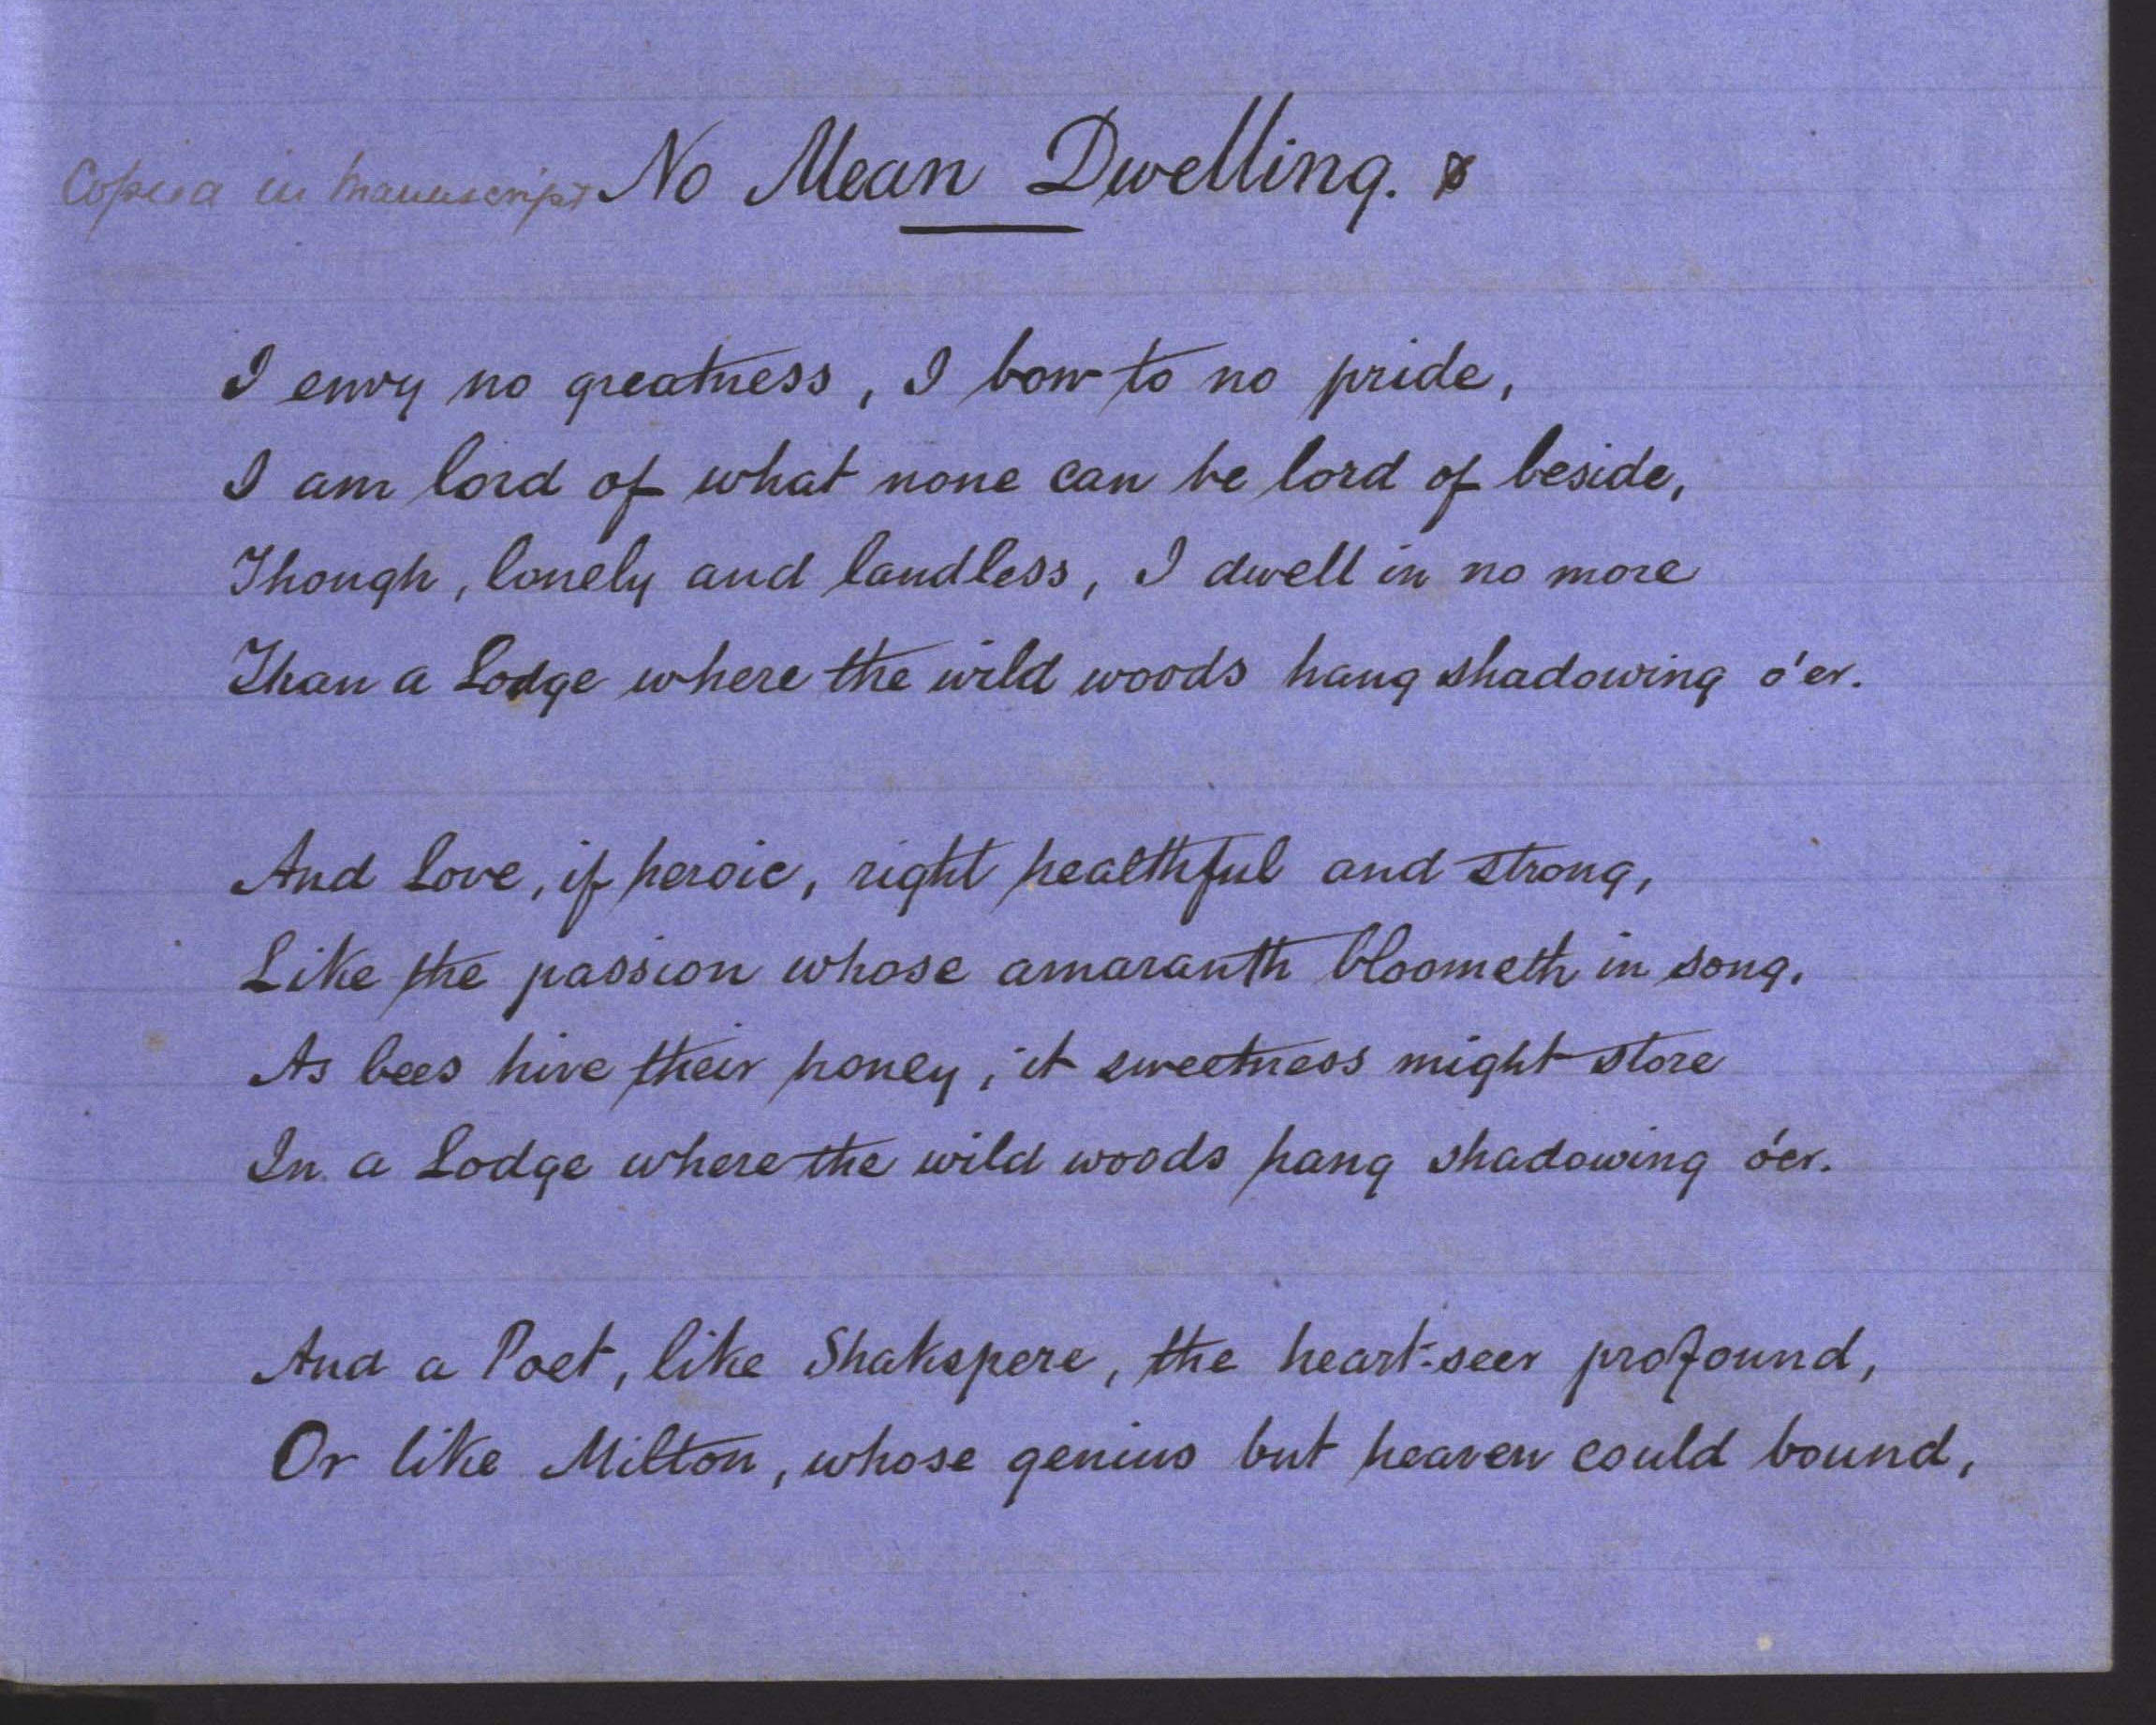 Copied in Manuscript No Mean Dwelling.
I envy no greatness, I bow to no pride,
I am lord of what none can be lord of beside,
Though, lonely and landless, I dwell in no more
Than a Lodge where the wild woods hang shadowing o'er.
And Love, if heroic, right healthful and strong,
Like the passion whose amaranth bloometh in song.
As bees hive their honey, it sweetness might store
In a Lodge where the wild woods hang shadowing o'er.
And a Poet, like Shakspere, the heart-seer profound,
Or like Milton, whose genius but heaven could bound,